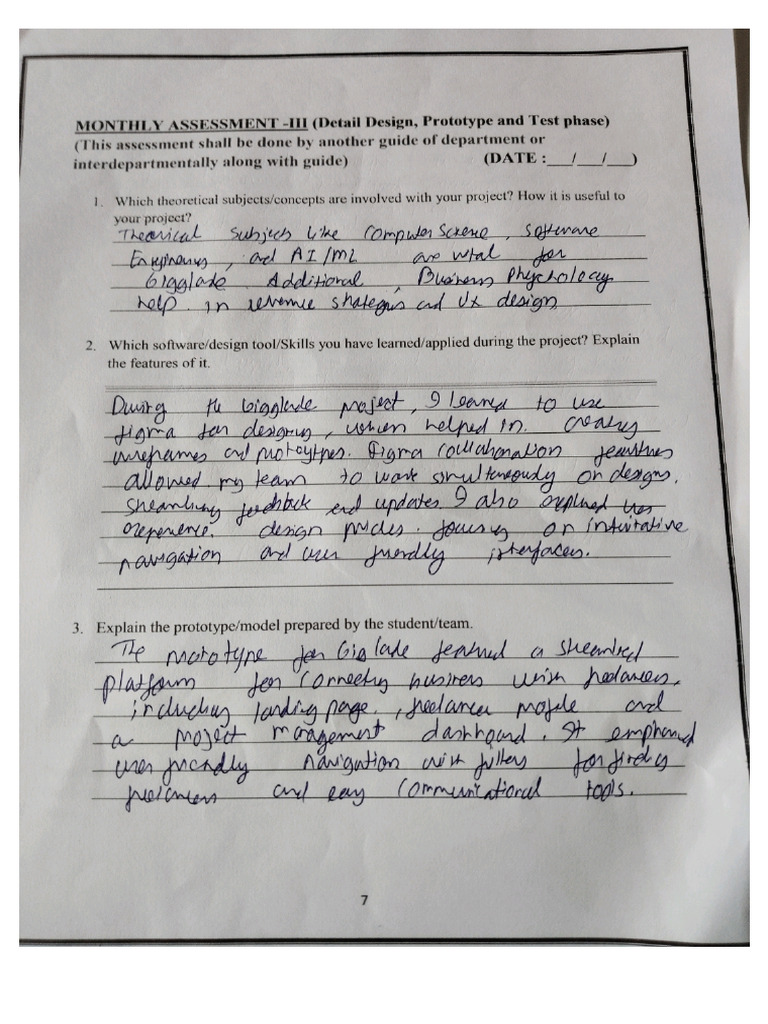 MONTHLY ASSESSMENT -III (Detail Design, Prototype and Test phase)
(This assessment shall be done by another guide of department or
interdepartmentally along with guide) (DATE :___/___/___)
1. Which theoretical subjects/concepts are involved with your project? How it is useful to
your project?
Theorical subjects like Computer Science, Software
and AI/ML are vital for
Gigglade. Additional, Business Phychology
help in revenue strategies and UX design
2. Which software/design tool/Skills you have learned/applied during the project? Explain
the features of it.
During the Gigglade project, I learned to use
figma for designing, which helped in creating
wireframes and prototypes. Figma collaboration features
allowed my team to work simultaneously on designs,
streamlining feedback and updates. I also explored user
experience. design focusing on intuitative
navigation and user friendly interfaces.
3. Explain the prototype/model prepared by the student/team.
The prototype for Giglade featured a
platform for connecting business with freelancers,
including landing page, freelancer profile and
a project management dashboard. It emphasized
user friendly navigation with filters for finding
freelancers and easy communicational tools.
7